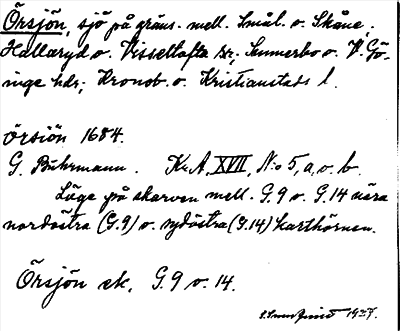 Örsjön, sjö på gräns. mell. Smål. o. Skåne,
Hallaryd o. Visseltofta sr; Sunnerbo o. V. Gö-
inge hdr; Kronob. o. Kristianstads l.
örsiön 1684.
G. Buhrmann. Kr. A, XVII, No 5, a, o. b.
Läge på skarven mell. G.9 o. G.14 nära
nordöstra (G.9) o. sydöstra (G.14) karthörnen.
Örsjön ek. G.9 o. 14.
1937.